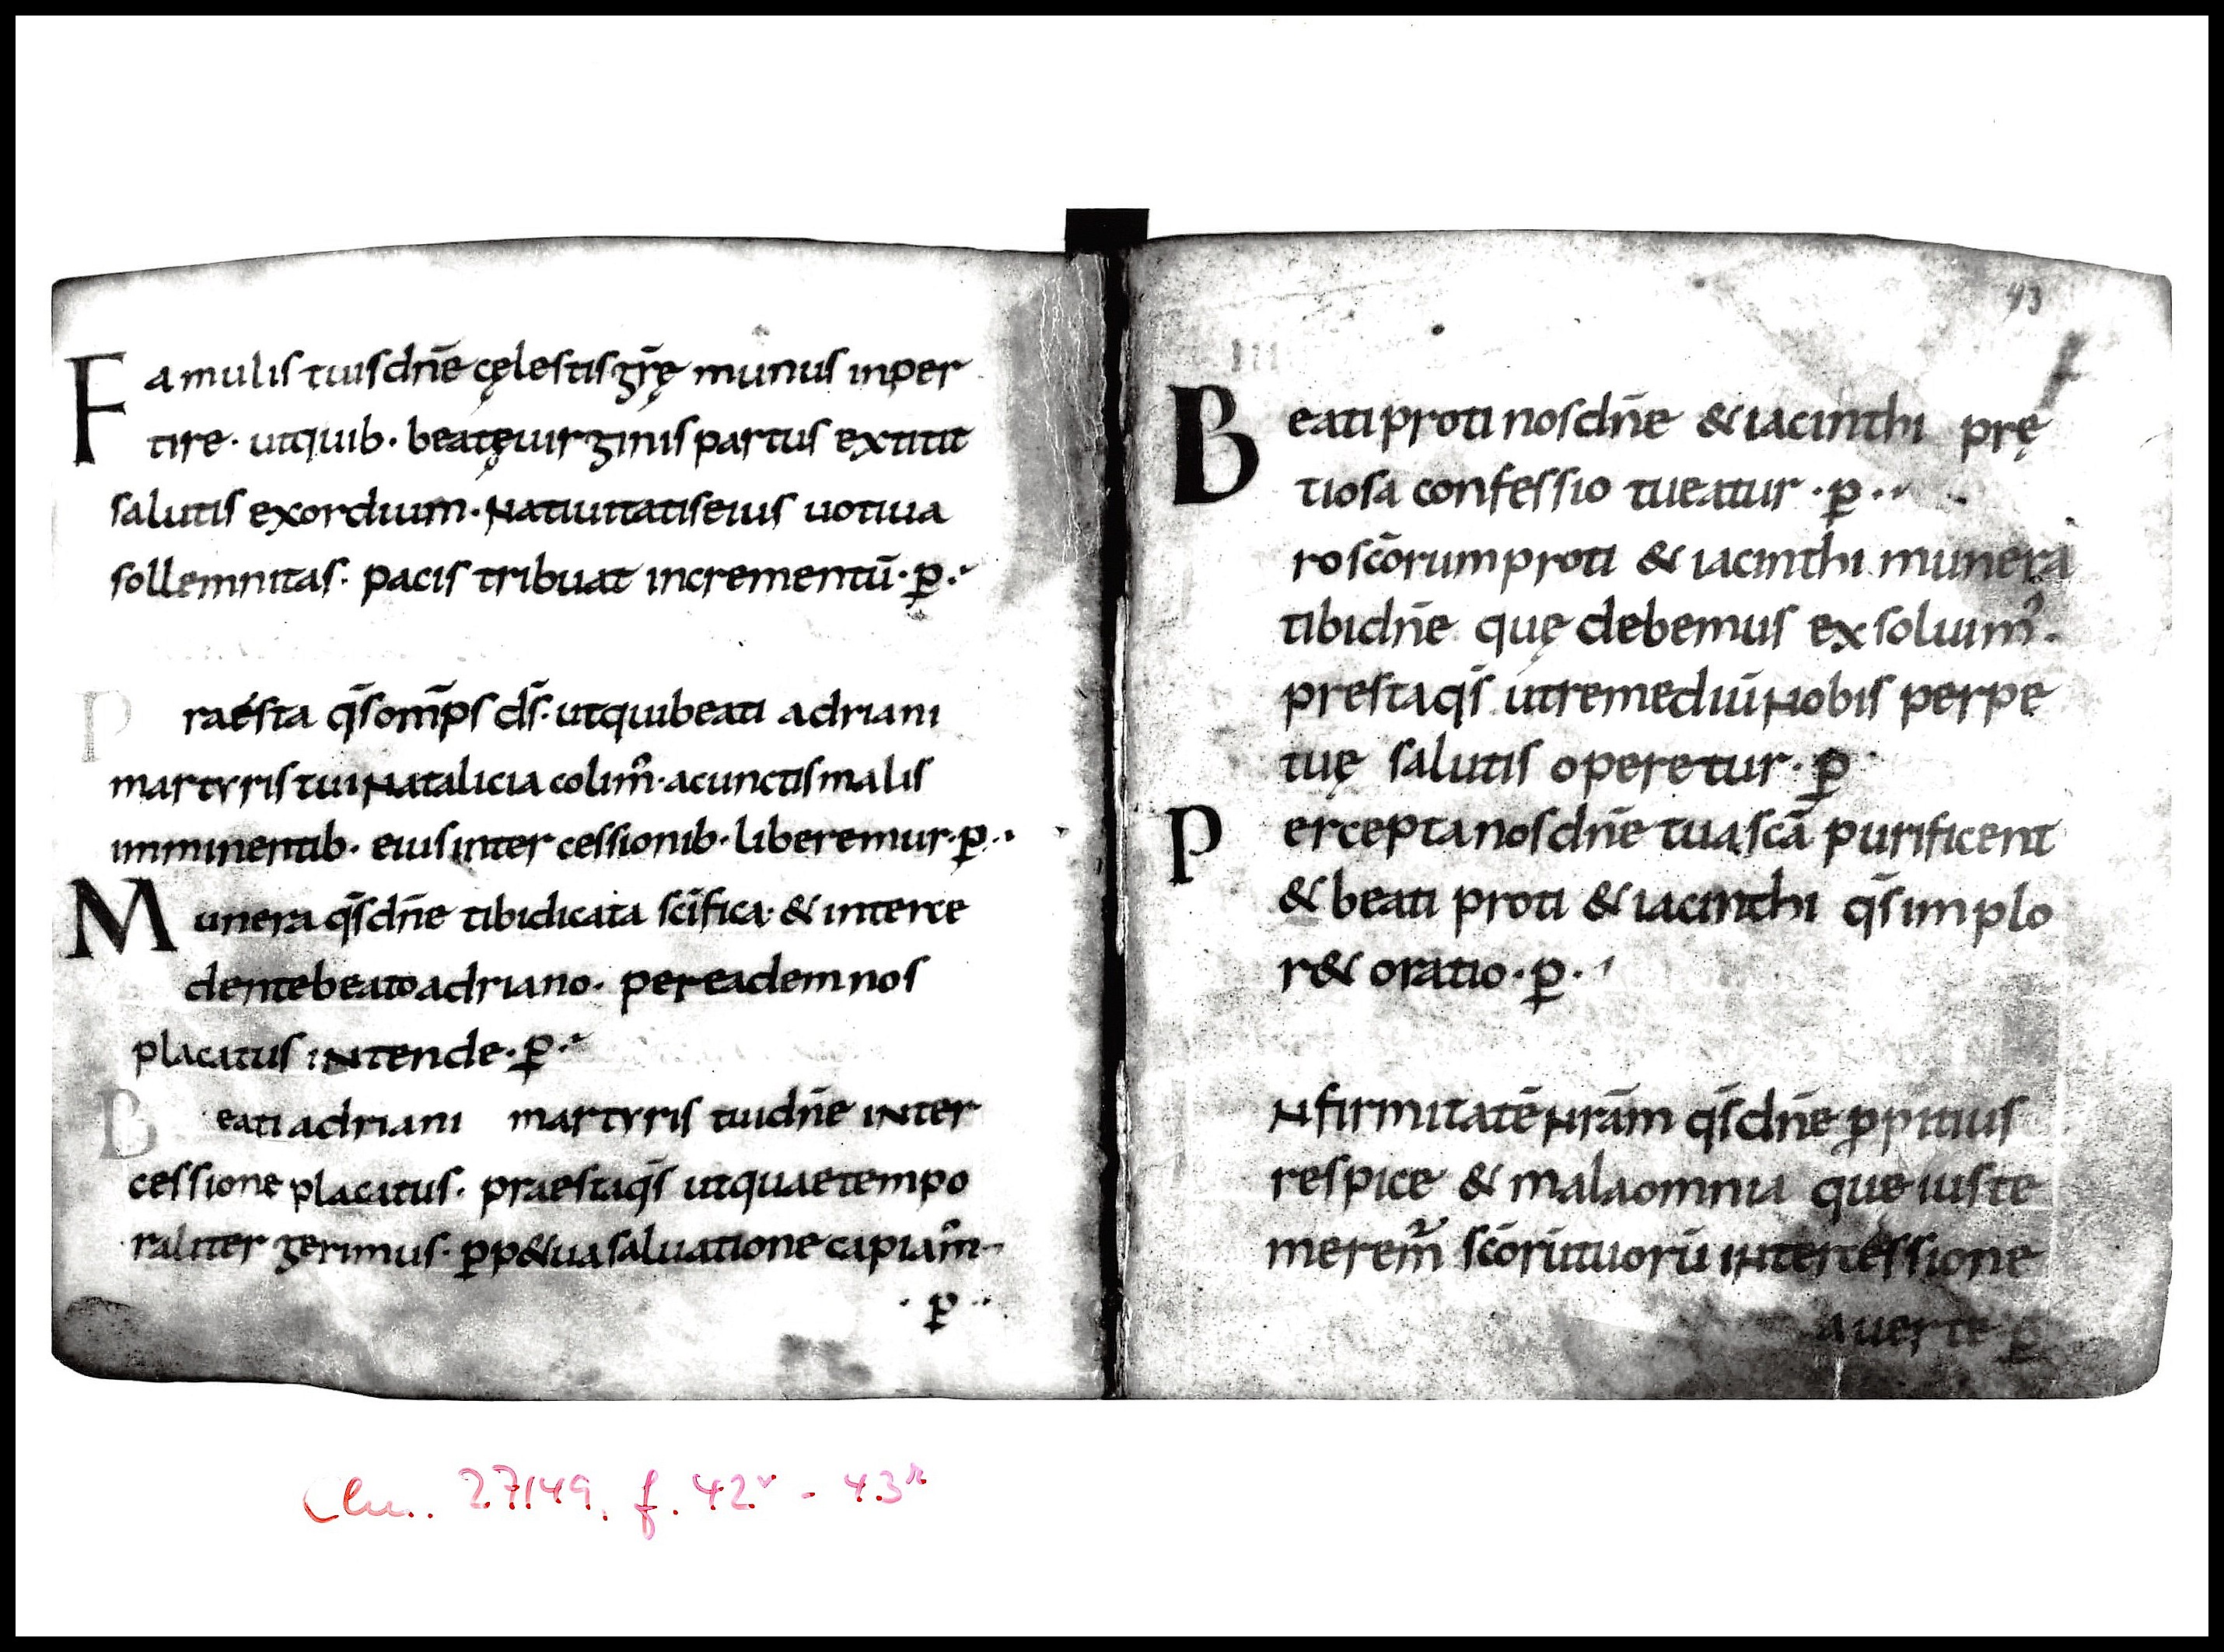 Famulis tuis dn̄e cęlestis gr̄ę munus inper
tire· utquib· beatę uirginis partus extitit
salutis exordium· Natiuitatis eius uotiua
sollemnitas· pacis tribuat incrementū· p̱·
Praesta q̄s om̄ps d̄s· ut qui beati adriani
martyris tui Natalicia colim̄· a cunctis malis
imminentib· eius inter cessionib· liberemur· p̱·
Munera q̄s dn̄e tibi dicata sc̄ifica· & interce
dente beato adriano· per eadem nos
placatus iNtende· p̱·
Beati adriani martyris tui dn̄e iNter
cessione placatus· praesta q̄s ut quae tempo
raliter gerimus· p̱p&ua saluatione capiam̄·
· p̱ ·
43
Beati proti nos dn̄e & iacinthi prę
tiosa confessio tueatur · p̱ ·
ro sc̄orum proti & iacinthi munera
tibi dn̄e quę debemus exsoluim᾿·
presta q̄s ut remediū Nobis perpe
tuę salutis operetur· p̱
Percepta nos dn̄e tua sc̄a purificent
& beati proti & iacinthi q̄s implo
r& oratio· p̱·
Nfirmitatē Nr̄am q̄s dn̄e p̱pitius
respice & mala omnia que iuste
merem᾿ sc̄orū tuorū iNtercessione
auerte p̱
Clm. 27149. f. 42v - 43r